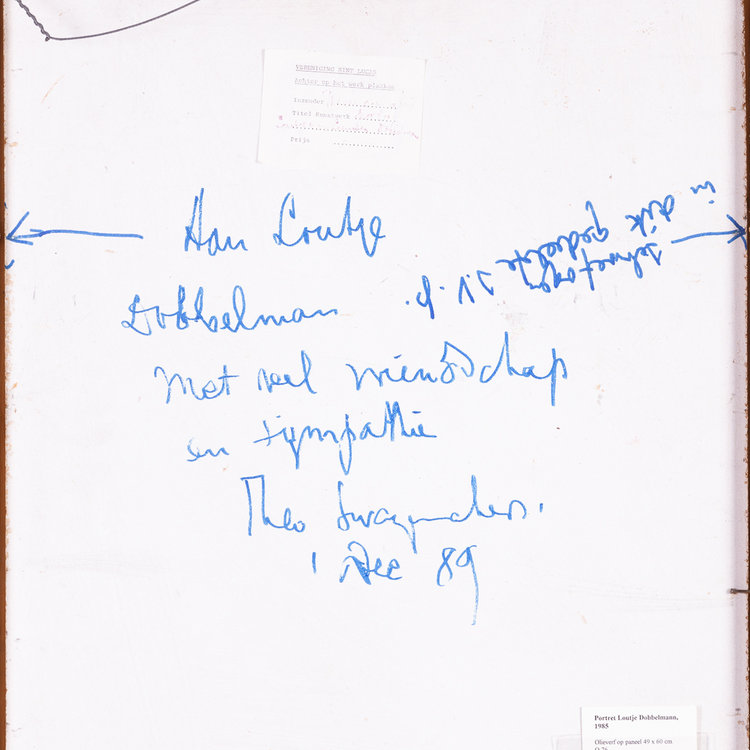 VERENIGING SINT LUCAS
Achter op het werk plakken
Inzender
Titel Kunstwerk
Prijs
Aan Loutje
Dobbelman
Met veel vriendschap
en sympathie
Theo Swagemakers.
1 Dec 89
schroefogen
in dik gedeelte
Portret Loutje Dobbelmann,
1985
Olieverf op paneel 49 x 60 cm.
O 76